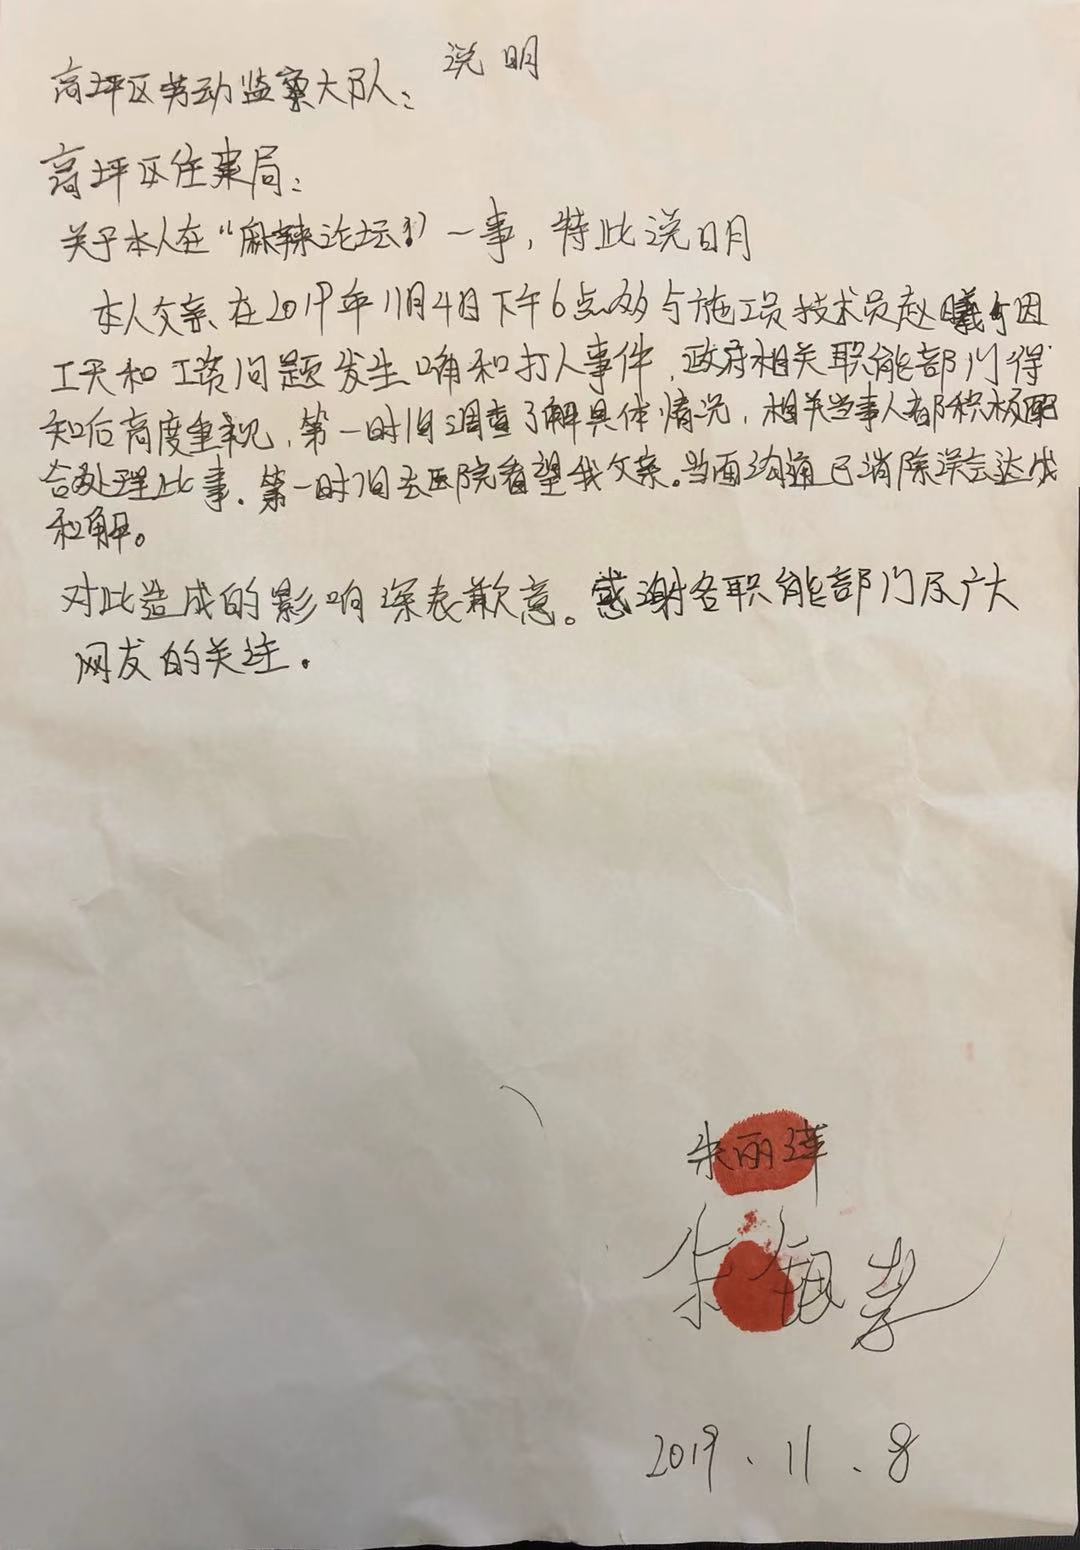 说明
高坪区劳动监察大队：
高坪区住建局：
关于本人在“麻辣论坛”一事，特此说明
本人父亲在2019年11月4日下午6点多与施工员技术员赵曦 因
工天和工资问题发生 和打人事件，政府相关职能部门得
知后高度重视，第一时间调查了解具体情况，相关当事人都积极配
合处理此事，第一时间去医院看望我父亲。当面沟通已消除误会达成
和解。
对此造成的影响深表歉意。感谢各职能部门及广大
网友的关注。
朱丽
2019.11.8